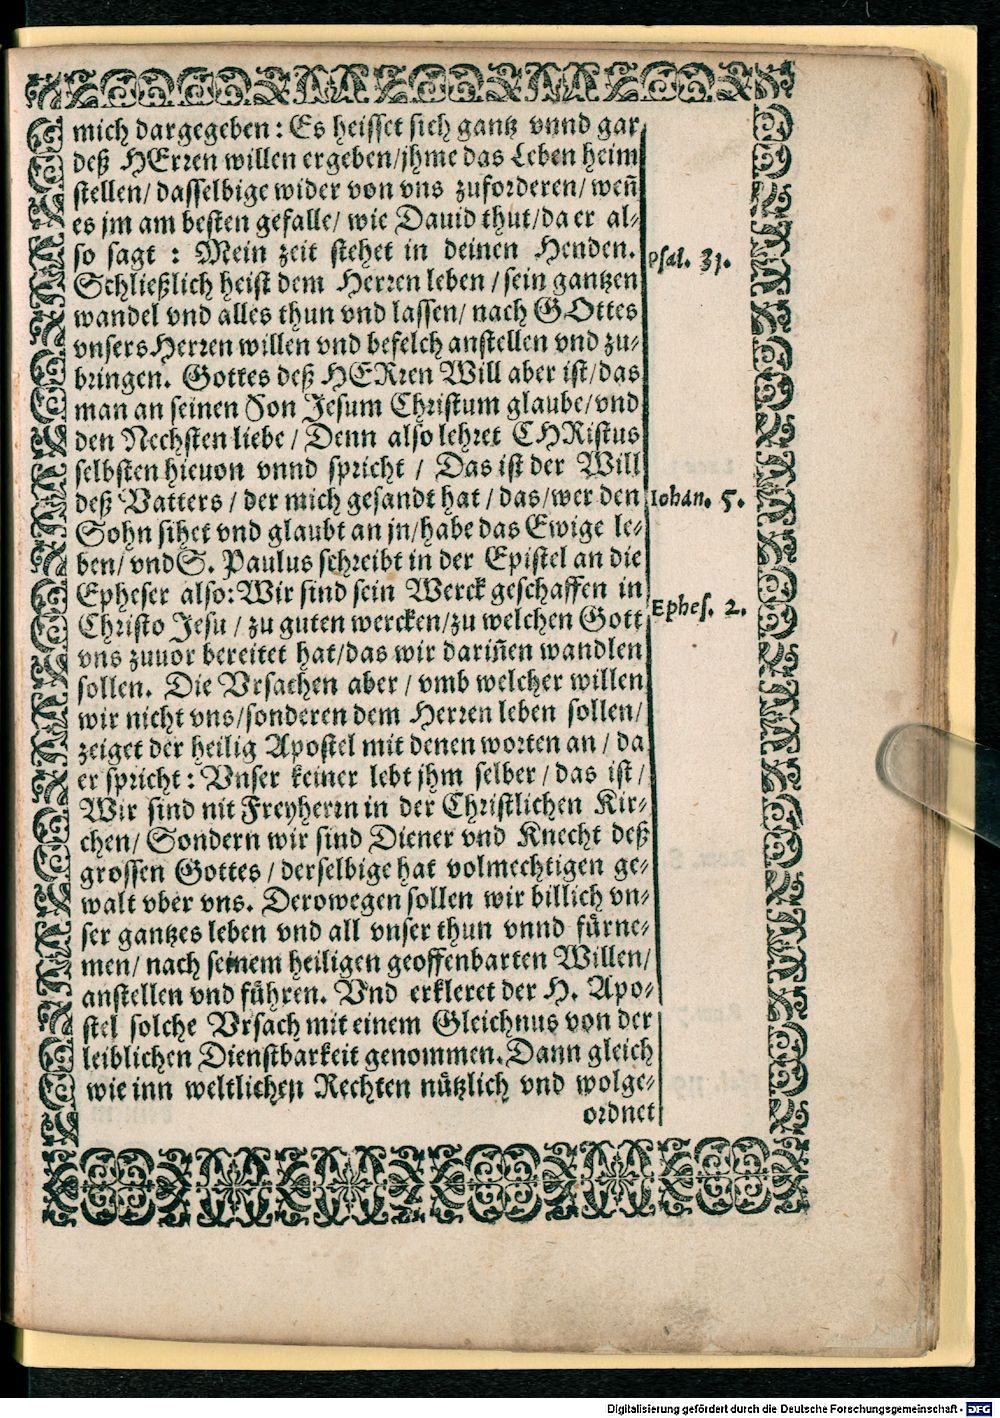 mich dargegeben: Es heisset sich gantz vnnd gar
deß HErren willen ergeben/jhme das Leben heim
stellen/ dasselbige wider von vns zuforderen/ weñ
es jm am besten gefalle/ wie Dauid thut/da er al-
so sagt : Mein zeit stehet in deinen Henden.
Psal. 31.
Schließlich heist dem Herren leben / sein gantzen
wandel vnd alles thun vnd lassen/ nach GOttes
vnsers Herren willen vnd befelch anstellen vnd zu-
bringen. Gottes deß HERren Will aber ist/das
man an seinen Son Jesum Christum glaube/vnd
den Nechsten liebe / Denn also lehret CHRistus
selbsten hieuon vnnd spricht / Das ist der Will
deß Vatters / der mich gesandt hat / das/wer den
Iohan. 5.
Sohn sihet vnd glaubt an jn/habe das Ewige le-
ben/ vnd S. Paulus schreibt in der Epistel an die
Epheser also: Wir sind sein Werck geschaffen in
Ephes. 2.
Christo Jesu / zu guten wercken/zu welchen Gott
vns zuuor bereitet hat/das wir dariñen wandlen
sollen. Die Vrsachen aber / vmb welcher willen
wir nicht vns/sonderen dem Herren leben sollen/
zeiget der heilig Apostel mit denen worten an / da
er spricht : Vnser keiner lebt jhm selber / das ist /
Wir sind nit Freyherrn in der Christlichen Kir-
chen/ Sondern wir sind Diener vnd Knecht deß
grossen Gottes / derselbige hat volmechtigen ge-
walt vber vns. Derowegen sollen wir billich vn-
ser gantzes leben vnd all vnser thun vnnd fürne-
men/ nach seinem heiligen geoffenbarten Willen/
anstellen vnd führen. Vnd erkleret der H. Apo-
stel solche Vrsach mit einem Gleichnus von der
leiblichen Dienstbarkeit genommen. Dann gleich
wie inn weltlichen Rechten nützlich vnd wolge-
ordnet
Digitalisierung gefördert durch die Deutsche Forschungsgemeinschaft - DFG